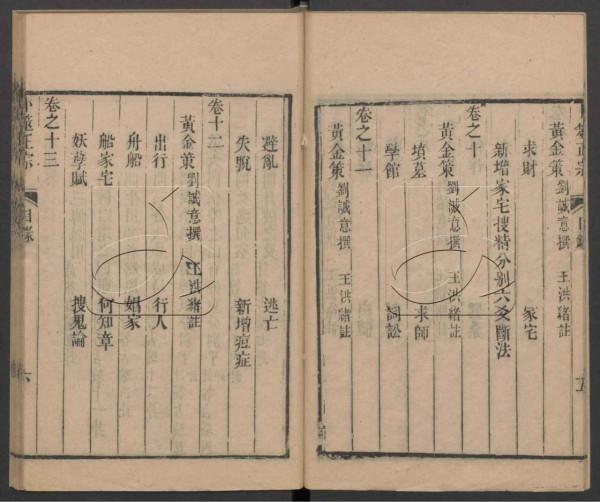 黃金策 劉誠意撰 王洪緒註
求財 家宅
新增家宅搜精分别六爻斷法
卷之十
黃金策 劉誠意撰 王洪緒註
墳墓 求師
學館 詞訟
卷之十一
黃金策 劉誠意撰 王洪緒註
五
避亂 逃亡
失脫 新增痘症
卷十二
黃金策 劉誠意撰 王洪緒註
出行 行人
舟船 娼家
船家宅 何知章
妖孽賦 搜鬼論
卷之十三
卜筮正宗 目錄 六